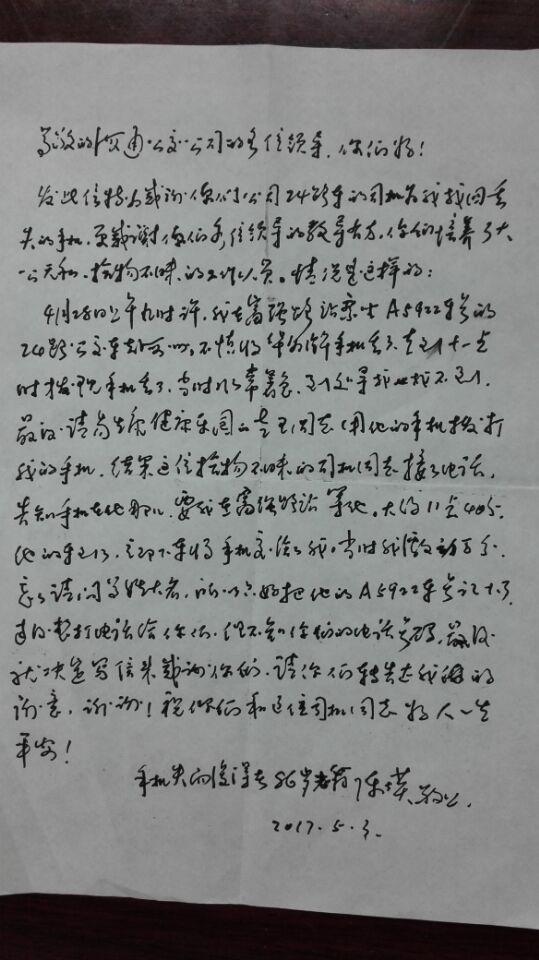 尊敬的交通公交公司的各位领导，你们好！
发此信特为感谢你们公司24路车的司机为我找回丢
失的手机，更感谢你们各位领导的教导有方，你们培养了大
公无私、拾物不昧的工作人员。情况是这样的：
4月28日上午九时许，我在富强路站乘坐A5922车号的
24路公交车去，不慎将华为牌手机丢了，直到十一点
时才发现手机丢了，当时非常着急，到处寻找也找不到，
最后请养生苑健康乐园的王同志（用他的手机拨打
我的手机，结果这位拾物不昧的司机同志接了电话，
告知手机在他那儿，要我在富强路站等他。大约11点40分
他的车到了，立即下车将手机交给了我，当时我激动万分，
忘了请问尊姓大名，所以只好把他的A5922车号记下了，
事后想打电话给你们，但不知你们的电话号码，最后
就决定写信来感谢你们，请你们转告我的
谢意，谢谢！祝你们和这位司机同志好人一生
平安！
手机失而复得者86岁老翁 陈瑛 敬上
2017.5.3.